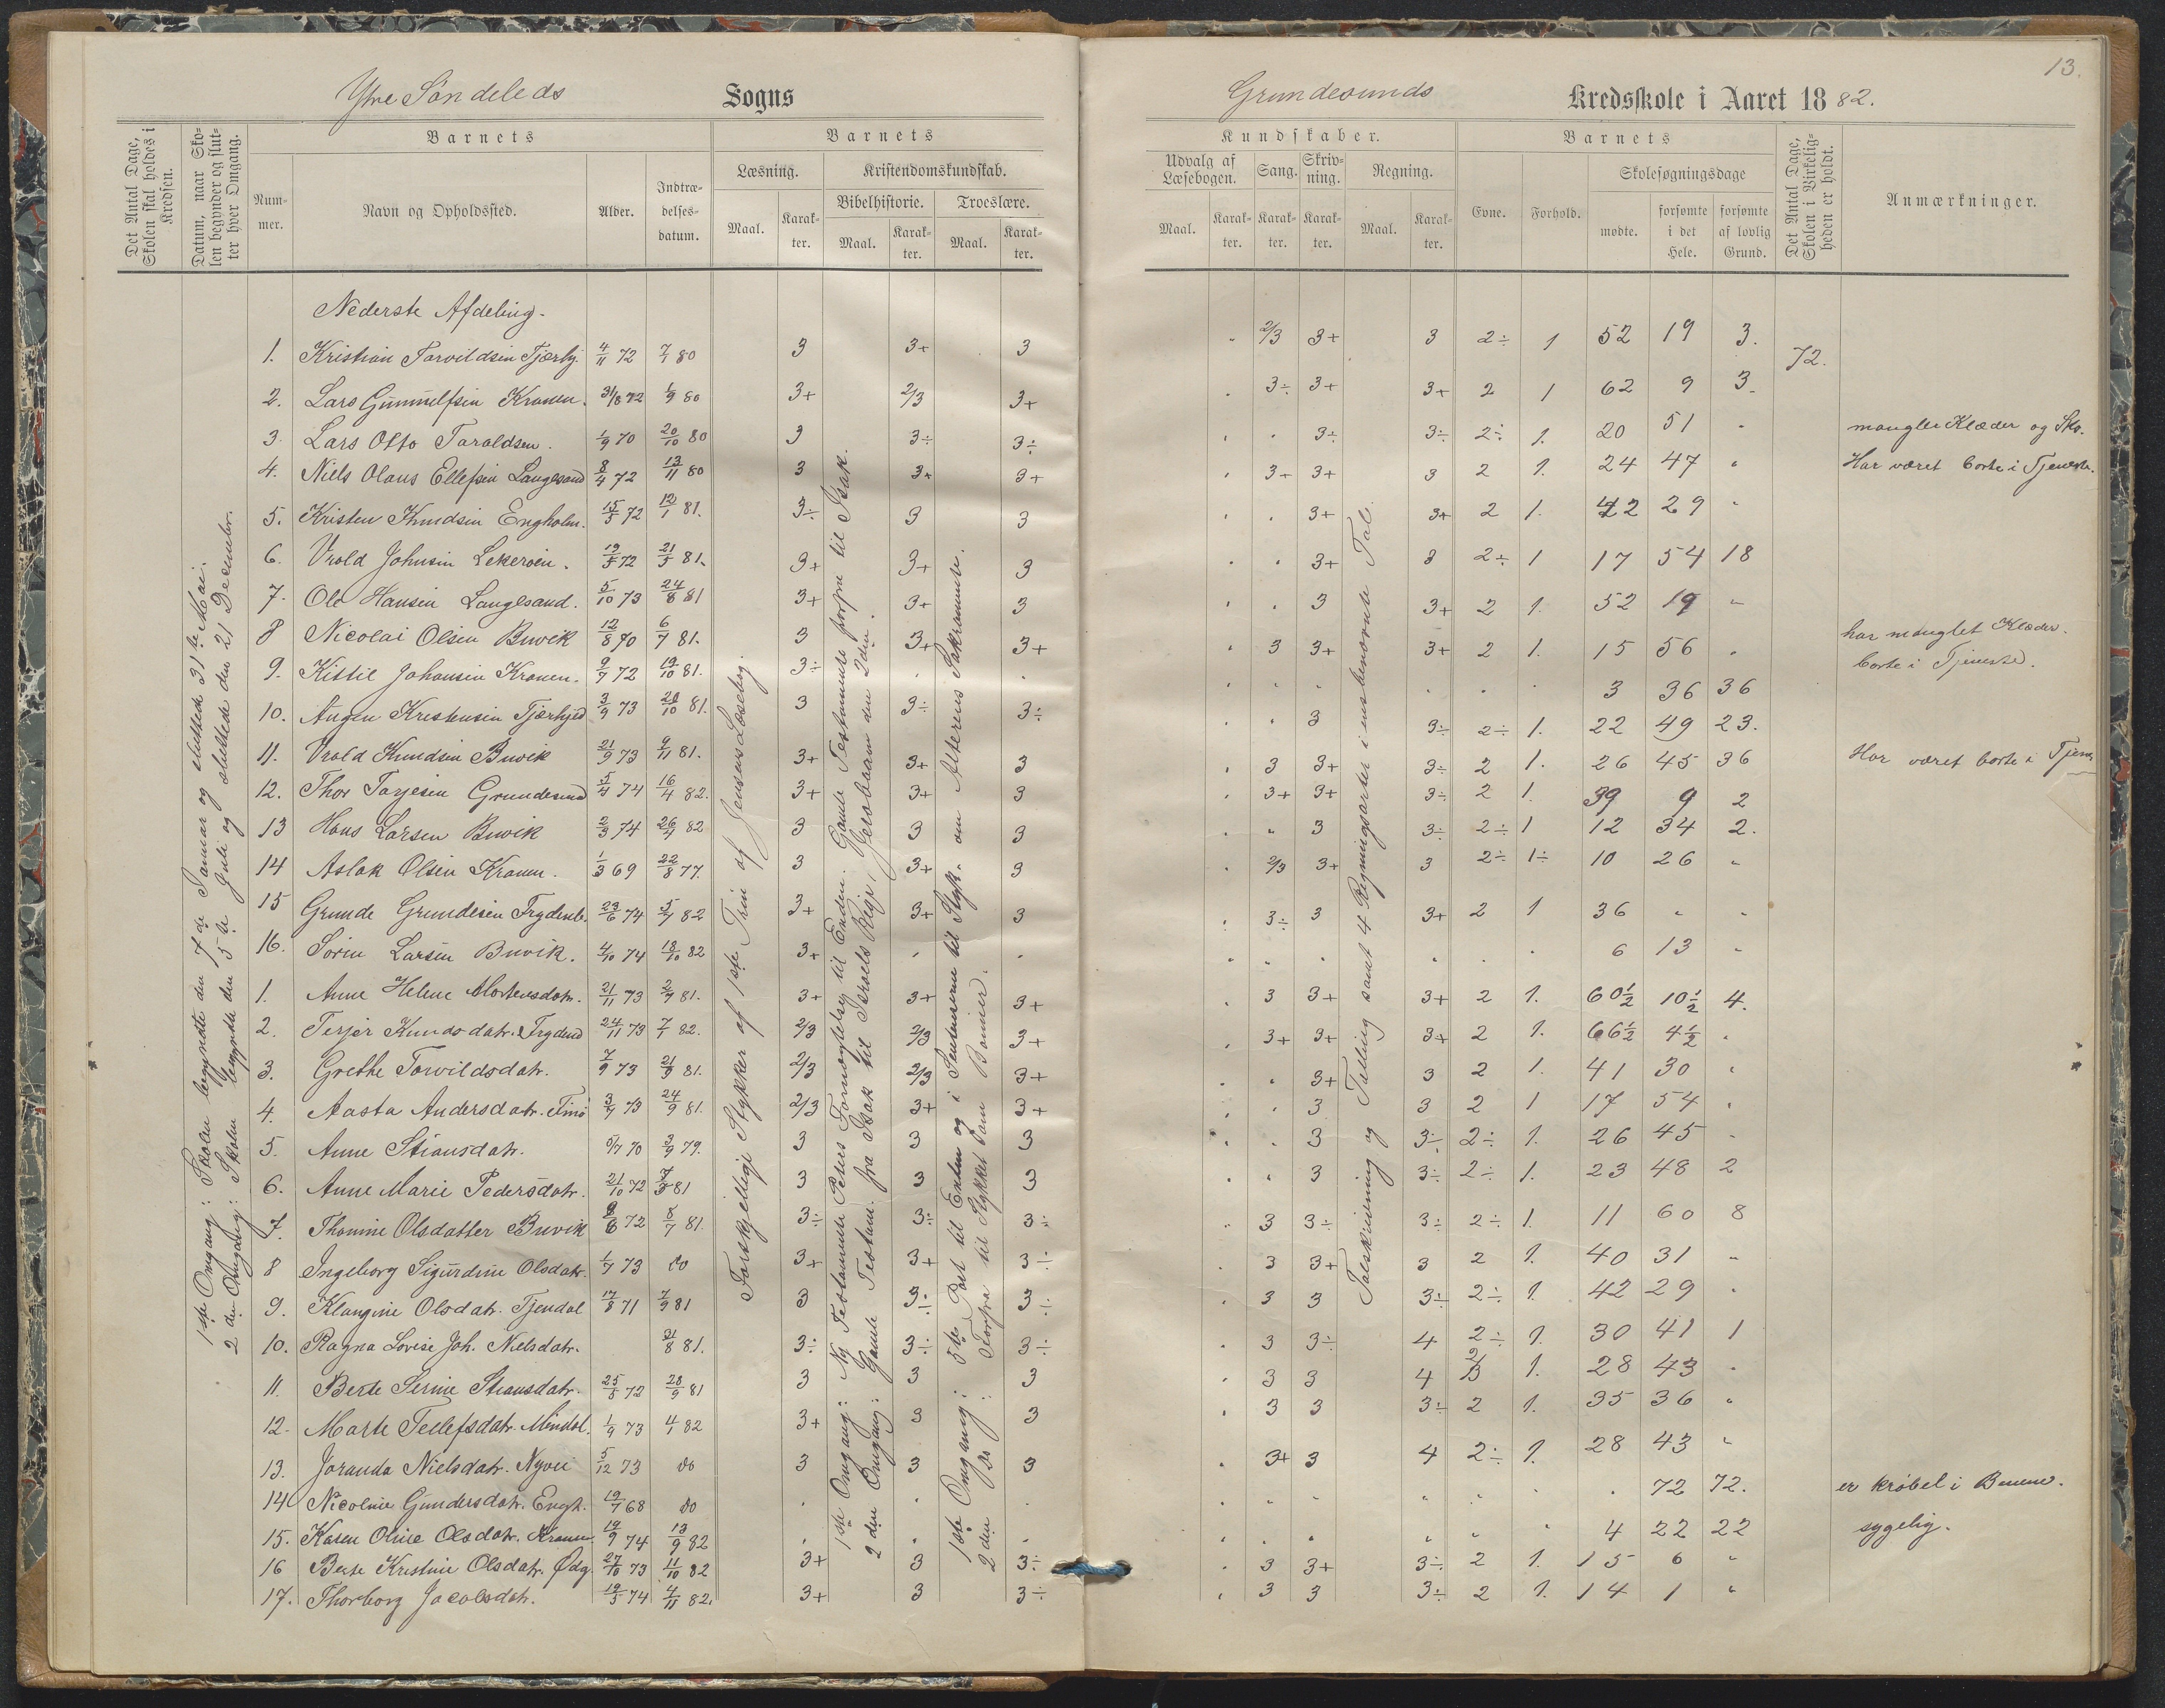 13.
Ytre Søndeleds Sogns
Grundesunds Kredsskole i Aaret 1882.
Det Antal Dage, Skolen skal holdes i Kredsen.
Datum, naar Skolen begynder og slutter hver Omgang.
Barnets
Nummer.
Navn og Opholdssted.
Alder.
Indtrædelsesdatum.
Barnets
Læsning.
Maal.
Karakter.
Kristendomskundskab.
Bibelhistorie.
Maal.
Karakter.
Troeslære.
Maal.
Karakter.
Kundskaber.
Udvalg af Læsebogen.
Maal.
Karakter.
Sang.
Karakter.
Skrivning.
Karakter.
Regning.
Maal.
Karakter.
Barnets
Evne.
Forhold.
Skolesøgningsdage
mødte.
forsømte i det Hele.
forsømte af lovlig Grund.
Det Antal Dage, Skolen i Virkeligheden er holdt.
Anmærkninger.
1ste Omgang: Skolen begyndte den 7de Januar og sluttede 31te Mai.
2den Omgang: Skolen begyndte den 5te Juli og sluttede den 21 December.
Forskjellige Stykker af 1ste Trin af Jensens Læsebog.
1ste Omgang: Ny Testamente Peters Fornægtelse til Enden. Gamle Testamente forfra til Isak.
2den Omgang: Gamle Testam. fra Isak til Israels Rige, Jeroboam den 2den.
1ste Omgang: 5te Part til Enden og i Sentenserne til Styk. om Alterens Sakramente.
2den Do: Forfra til Stykket om Bønner.
Talskrivning og Tælling samt 4 Regningsarter i ensbenævnte Tal.
Nederste Afdeling.
1. Kristian Torvildsen Tjærbj. 4/11 72 7/1 80 3 3+ 3 " 2/3 3+ 3 2÷ 1 52 19 3. 72.
2. Lars Gunnulfsen Kranen. 31/8 72 1/9 80 3+ 2/3 3+ " 3÷ 3+ 3+ 2 1 62 9 3
3. Lars Otto Taraldsen. 1/9 70 20/10 80 3 3÷ 3÷ " " 3÷ 3÷ 2÷ 1. 20 51 " mangler Klæder og Sko.
4. Niels Olaus Ellefsen Langesand 8/4 72 13/11 80 3 3+ 3+ " 3÷ 3+ 3 2 1. 24 47 " Har været borte i Tjeneste.
5. Kristen Knudsen Engholm. 15/5 72 12/1 81. 3÷ 3 3 " " 3+ 3+ 2 1. 42 29 "
6. Vrold Johnsen Lekeroen. 19/5 72 21/5 81. 3+ 3+ 3 " " 3+ 3 2÷ 1 17 54 18
7. Ole Hansen Langesand. 5/10 73 24/8 81 3+ 3+ 3 " " 3 3+ 2 1. 52 19 "
8 Nicolai Olsen Buvik 12/8 70 6/7 81. 3 3+ 3+ " 3 3+ 3+ 2 1. 15 56 " har manglet Klæder.
9. Kittil Johansen Kranen. 9/7 72 19/10 81. 3÷ " " " " " " " " 3 36 36 borte i Tjeneste.
10. Augen Kristensen Tjærbjed 3/9 73 20/10 81. 3 3÷ 3÷ " " 3 3÷ 2÷ 1. 22 49 23.
11. Vrold Knudsen Buvik 21/9 73 9/11 81. 3+ 3+ 3 " 3 3+ 3÷ 2 1. 26 45 36 Har været borte i Tjene
12. Thor Tarjesen Grundesund 5/4 74 16/4 82. 3+ 3+ 3 " 3+ 3+ 3÷ 2 1. 39 9 2
13 Hans Larsen Buvik 2/3 74 26/9 82 3 3 3 " " 3 3÷ 2÷ 1 12 34 2.
14 Aslak Olsen Kranen. 1/3 69 22/8 77. 3 3+ 3 " 2/3 3+ 3 2÷ 1÷ 10 26 "
15 Grunde Grundesen 23/6 74 5/7 82 3+ 3+ 3 " 3÷ 3 3+ 2 1 36 " "
16. Søren Larsen Buvik. 4/10 74 18/10 82 3+ " " " " " " " " 6 13 "
1. Anne Helene Mortensdatr. 21/11 73 2/7 81. 3+ 3+ 3+ " 3 3+ 3+ 2 1. 60½ 10½ 4.
2. Terjer Knudsdatr. 24/11 73 7/1 82. 2/3 2/3 3+ " 3+ 3+ 3+ 2 1. 66½ 4½ "
3. Grethe Torvildsdatr. 7/9 73 21/9 81. 2/3 2/3 3+ " " 3+ 3 2 1. 41 30 "
4. Aasta Andersdatr. 3/4 73 24/9 81. 2/3 3+ 3+ " " 3 3 2 1 17 54 "
5. Anne Stiansdatr. 5/7 70 3/9 79. 3 3 3 " " 3 3÷ 2÷ 1. 26 45 "
6. Anne Marie Pedersdatr. 21/10 72 7/5 81 3 3 3 " " 3 3÷ 2÷ 1. 23 48 2
7. Thomine Olsdatter Buvik 8/6 72 5/7 81. 3÷ 3÷ 3÷ " 3 3÷ 3÷ 2÷ 1. 11 60 8
8 Ingeborg Sigurdine Olsdatr. 1/7 73 do 3+ 3+ 3÷ " 3 3+ 3 2 1. 40 31 "
9. Klangine Olsdatr. Tjendal 17/8 71 7/9 81 3 3÷ 3÷ " 3 3 3÷ 2÷ 1. 42 29 "
10. Ragna Lovise Joh. Nielsdatr. 31/8 81. 3÷ 3÷ 3÷ " 3 3÷ 4 2÷ 1. 30 41 1
11. Berte Serine Stiansdatr. 25/5 72 28/9 81 3 3 3 " 3 3 4 2/3 1. 28 43 "
12. Marte Tellefsdatr. Mindal. 1/9 73 4/1 82 3+ 3 3 " 3 3 3÷ 2 1. 35 36 "
13. Joranda Nielsdatr. Nyvei 5/12 73 do 3 3 3 " 3+ 3 4 2÷ 1. 28 43 "
14 Nicoline Gundersdatr. Engh. 19/7 68 do " " " " " " " " " " 72 72. er krøbel i Benene.
15. Karen Oline Olsdatr. Kranen 19/9 74 13/9 82 " " " " " " " " " 4 22 22 sygelig.
16 Berte Kristine Olsdatr. Ødeg. 27/10 73 11/10 82 3+ 3 3÷ " 3 3+ 3÷ 2 1. 15 6 "
17. Thorborg Jacobsdatr. 19/5 74 4/11 82. 3+ 3 3÷ " 3 3 3÷ 2 1. 14 1 "